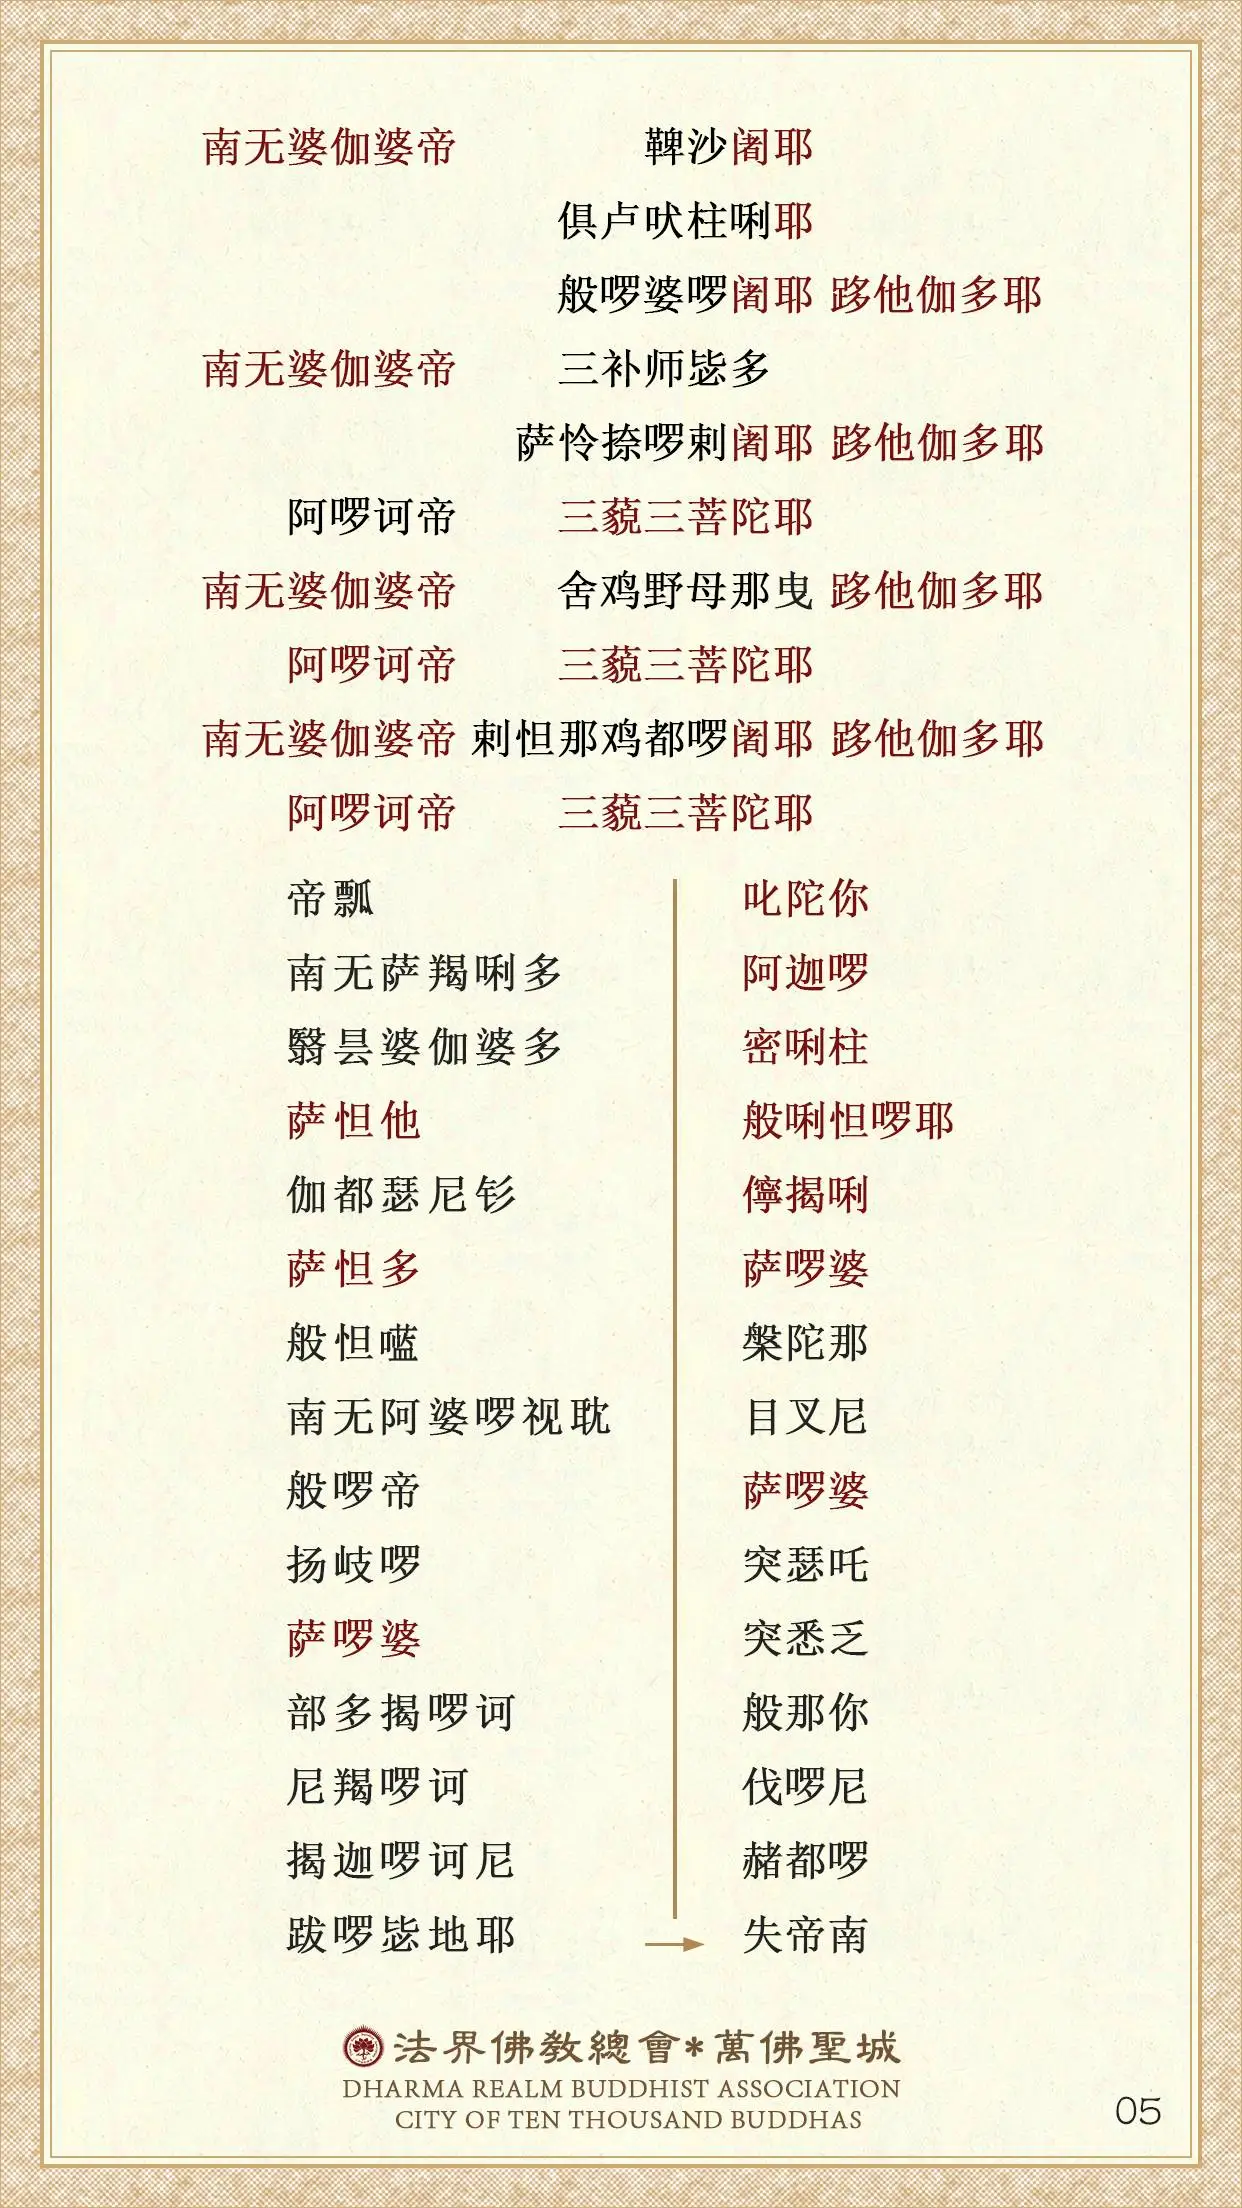 南无婆伽婆帝 鞞沙阇耶
俱卢吠柱唎耶
般啰婆啰阇耶 跢他伽多耶
南无婆伽婆帝 三补师毖多
萨怜捺啰剌阇耶 跢他伽多耶
阿啰诃帝 三藐三菩陀耶
南无婆伽婆帝 舍鸡野母那曳 跢他伽多耶
阿啰诃帝 三藐三菩陀耶
南无婆伽婆帝 剌怛那鸡都啰阇耶 跢他伽多耶
阿啰诃帝 三藐三菩陀耶
帝瓢
南无萨羯唎多
翳昙婆伽婆多
萨怛他
伽都瑟尼钐
萨怛多
般怛嚂
南无阿婆啰视耽
般啰帝
扬岐啰
萨啰婆
部多揭啰诃
尼羯啰诃
揭迦啰诃尼
跋啰毖地耶
叱陀你
阿迦啰
密唎柱
般唎怛啰耶
儜揭唎
萨啰婆
槃陀那
目叉尼
萨啰婆
突瑟吒
突悉乏
般那你
伐啰尼
赭都啰
失帝南
法界佛教總會*萬佛聖城
DHARMA REALM BUDDHIST ASSOCIATION
CITY OF TEN THOUSAND BUDDHAS
05